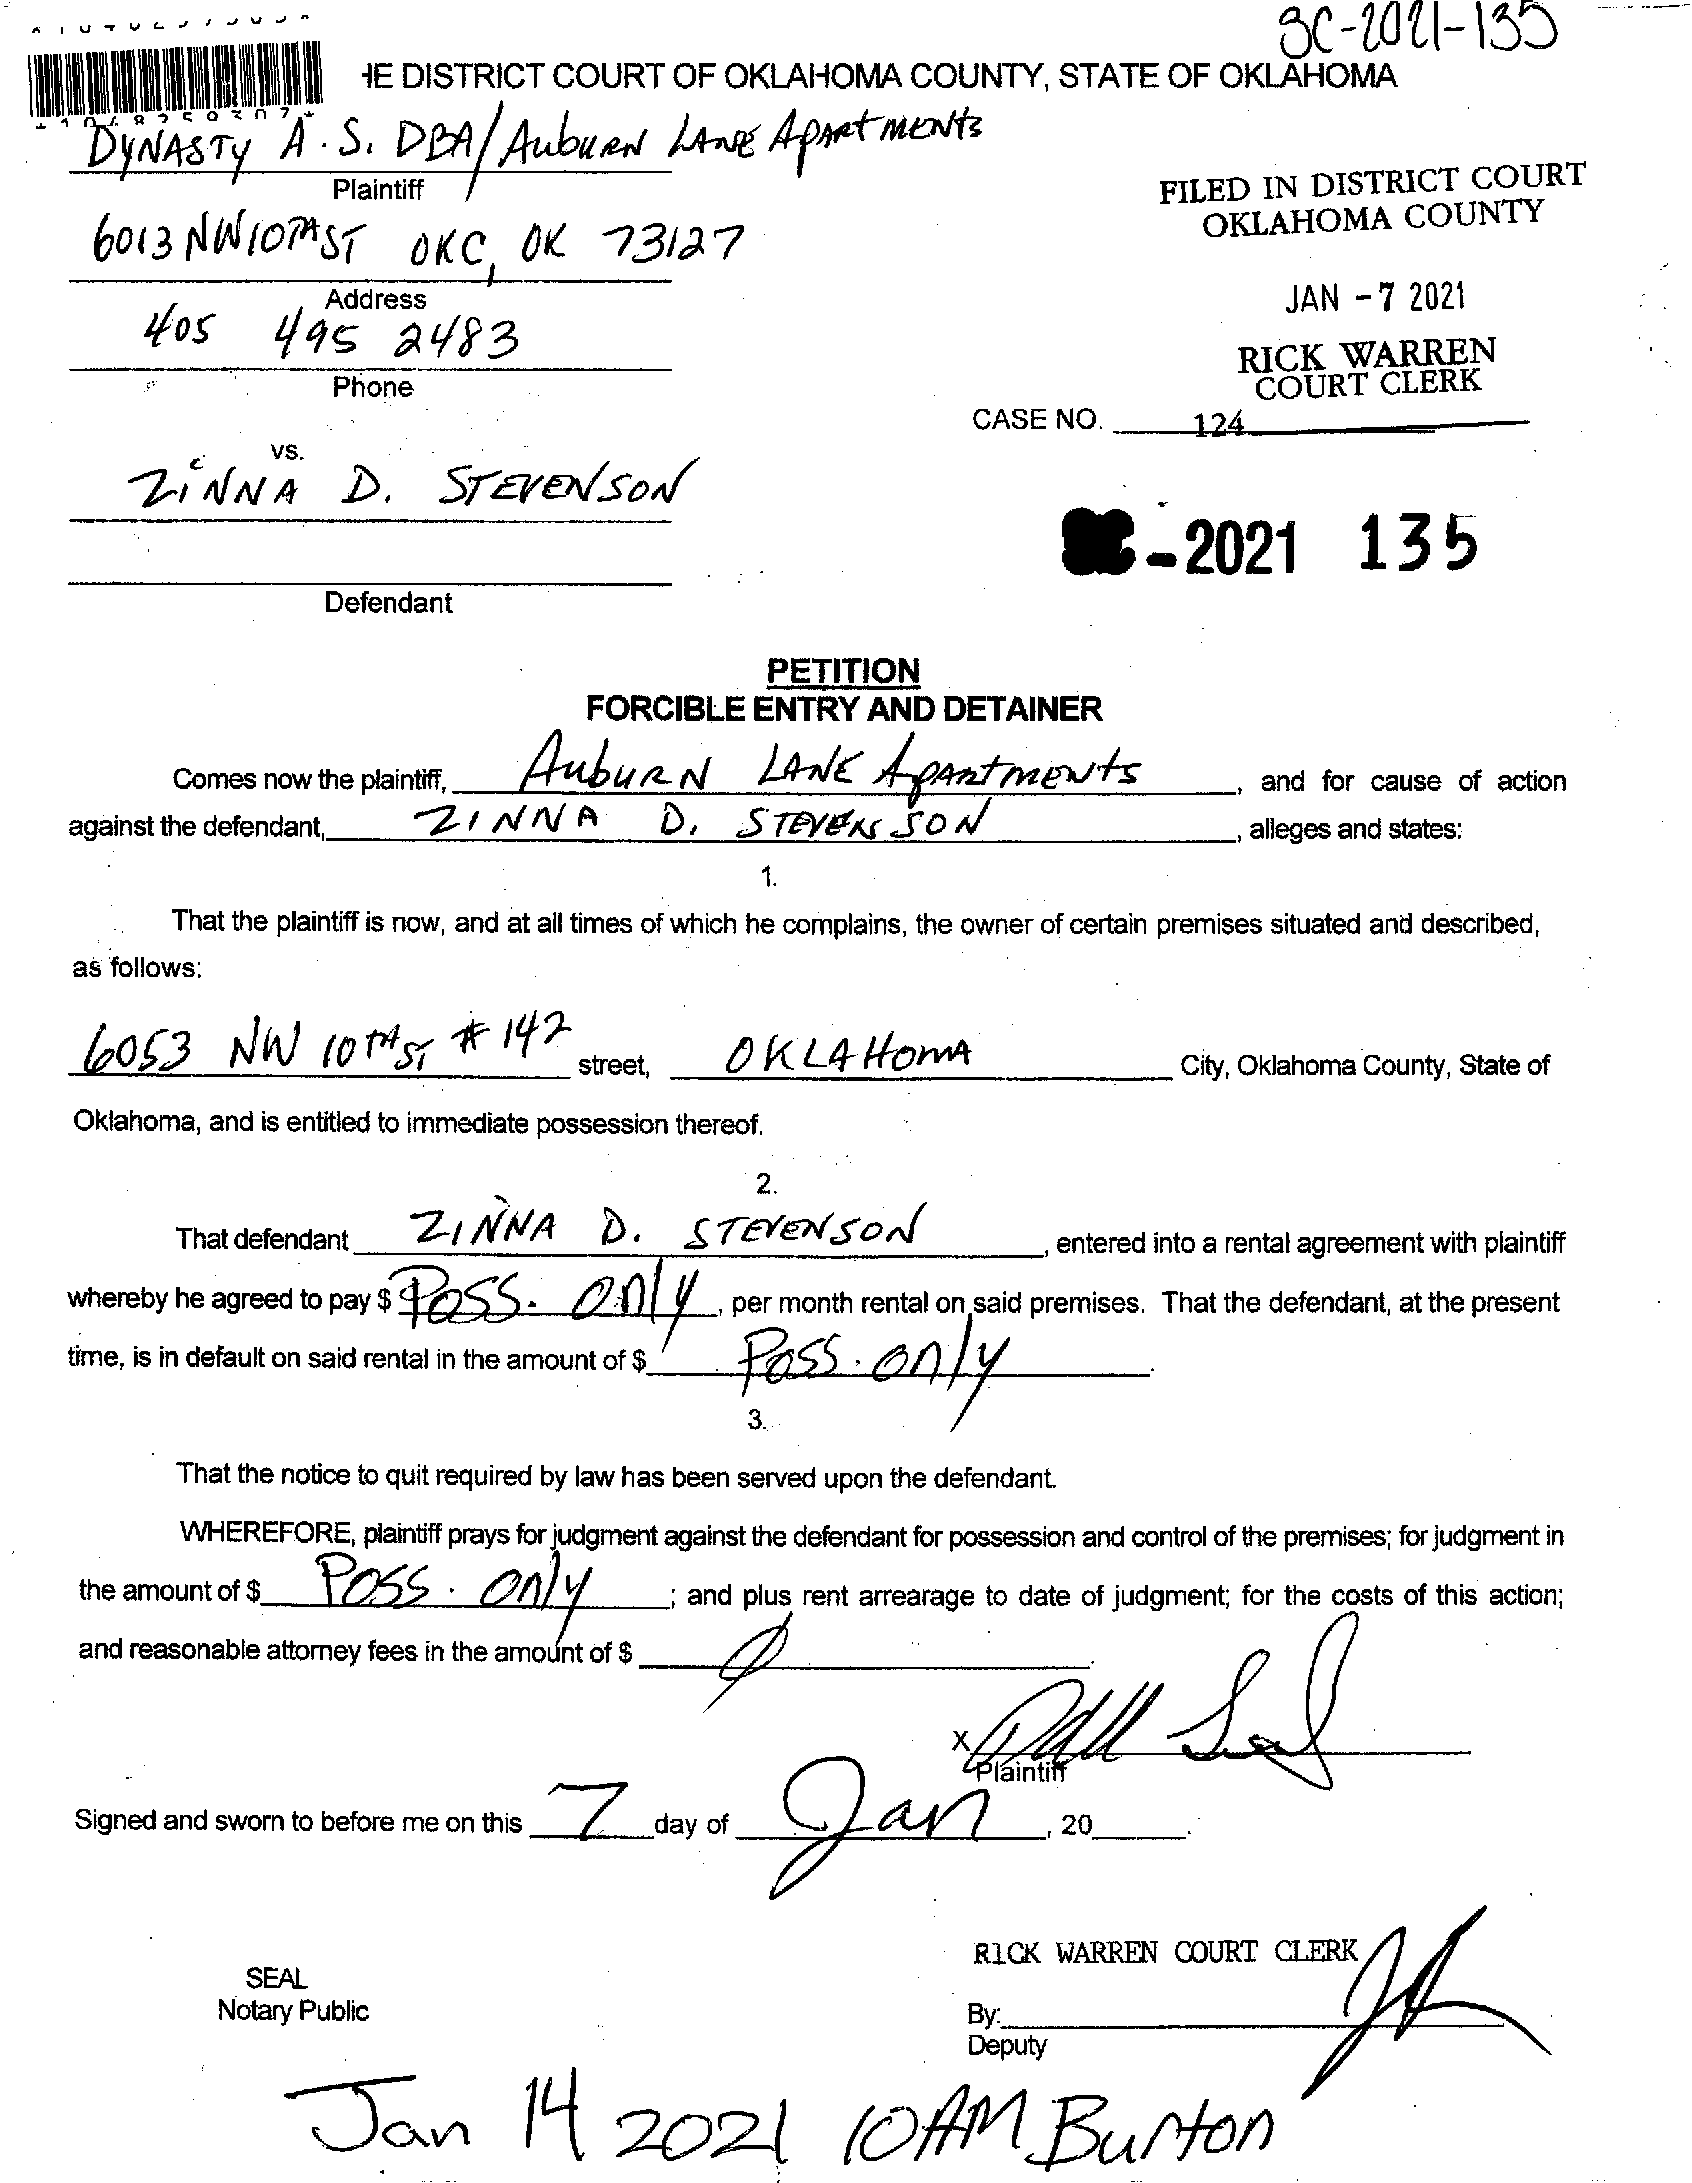 SC-2021-135
HE DISTRICT COURT OF OKLAHOMA COUNTY, STATE OF OKLAHOMA
DYNASTY A.S. DBA/ AubuRN LANE ApARtMENts
Plaintiff
FILED IN DISTRICT COURT
OKLAHOMA COUNTY
6013 NW 10TH ST OKC, OK 73127
Address
JAN -7 2021
405 495 2483
Phone
RICK WARREN
COURT CLERK
CASE NO. 124
vs.
ZiNNA D. STEVENSON
-2021 135
Defendant
PETITION
FORCIBLE ENTRY AND DETAINER
Comes now the plaintiff, AubuRN LANE ApARtmENts, and for cause of action
against the defendant, ZINNA D. STEVENSSON, alleges and states:
1.
That the plaintiff is now, and at all times of which he complains, the owner of certain premises situated and described,
as follows:
6053 NW 10TH ST # 142 street, OKLAHOMA City, Oklahoma County, State of
Oklahoma, and is entitled to immediate possession thereof.
2.
That defendant ZINNA D. STEVENSON, entered into a rental agreement with plaintiff
whereby he agreed to pay $ Poss. only, per month rental on said premises. That the defendant, at the present
time, is in default on said rental in the amount of $ Poss. only.
3.
That the notice to quit required by law has been served upon the defendant.
WHEREFORE, plaintiff prays for judgment against the defendant for possession and control of the premises; for judgment in
the amount of $ Poss. only; and plus rent arrearage to date of judgment; for the costs of this action;
and reasonable attorney fees in the amount of $ Ø.
X
Plaintiff
Signed and sworn to before me on this 7 day of Jan, 20.
RICK WARREN COURT CLERK
SEAL
Notary Public
By:
Deputy
Jan 14 2021 10AM Burton